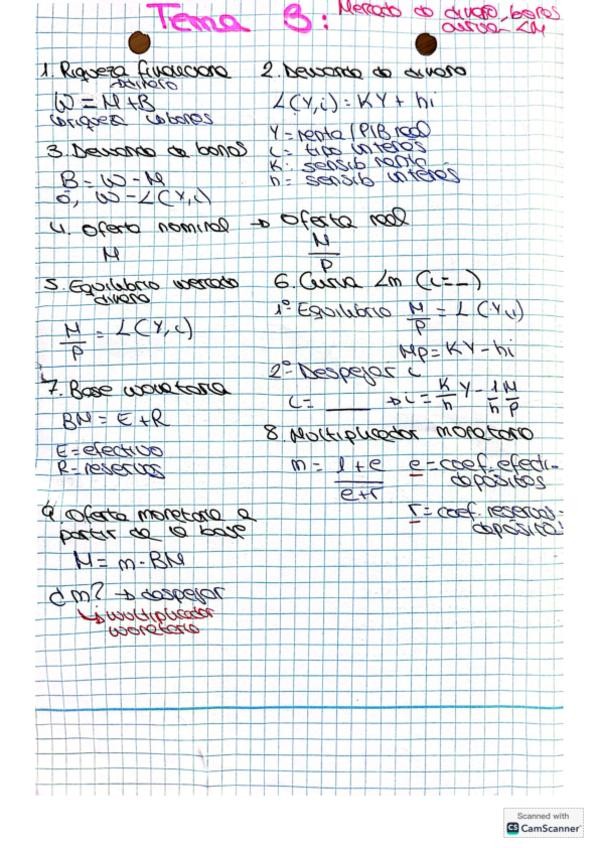 Tema 3: Mercado de dinero, bonos
curva LM
1. Riqueza financiera
dinero
W = M + B
riqueza bonos
2. Demanda de dinero
L(Y,i) = KY + hi
Y = renta / PIB real
i = tipo interés
K: sensib renta
h = sensib interés
3. Demanda de bonos
B = W - M
ó, W - L(Y,i)
4. Oferta nominal → Oferta real
M
M/P
5. Equilibrio mercado
dinero
M/P = L(Y,i)
6. Curva LM (i=_)
1º Equilibrio M/P = L(Y,i)
M/P = KY - hi
2º Despejar i
i = ___ → i = K/h Y - 1/h M/P
7. Base monetaria
BM = E + R
E = efectivo
R = reservas
8. Multiplicador monetario
m = 1+e / e+r
e = coef. efecti-
depósitos
r = coef. reservas-
depósitos
9. Oferta monetaria a
partir de la base
M = m · BM
d m? → despejar
↳ multiplicador
monetario
Scanned with
CS CamScanner